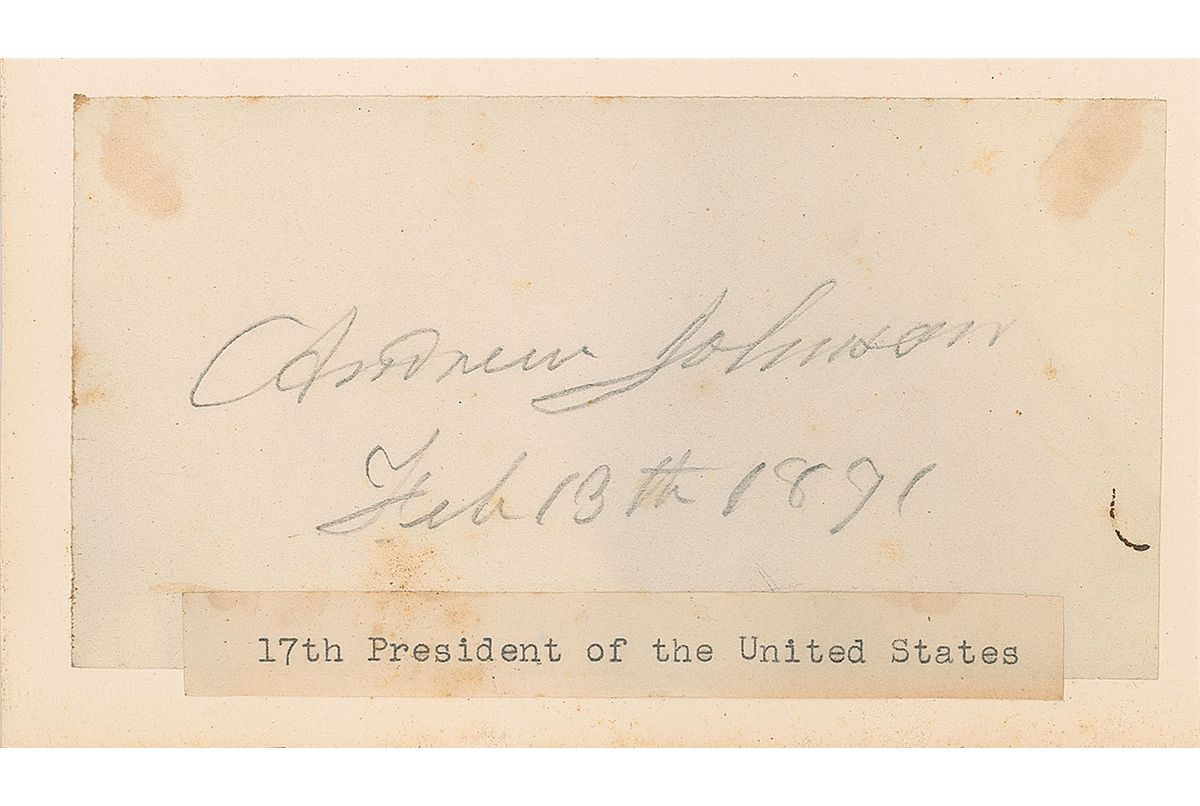 Andrew Johnson
Feb 13th 1871
17th President of the United States